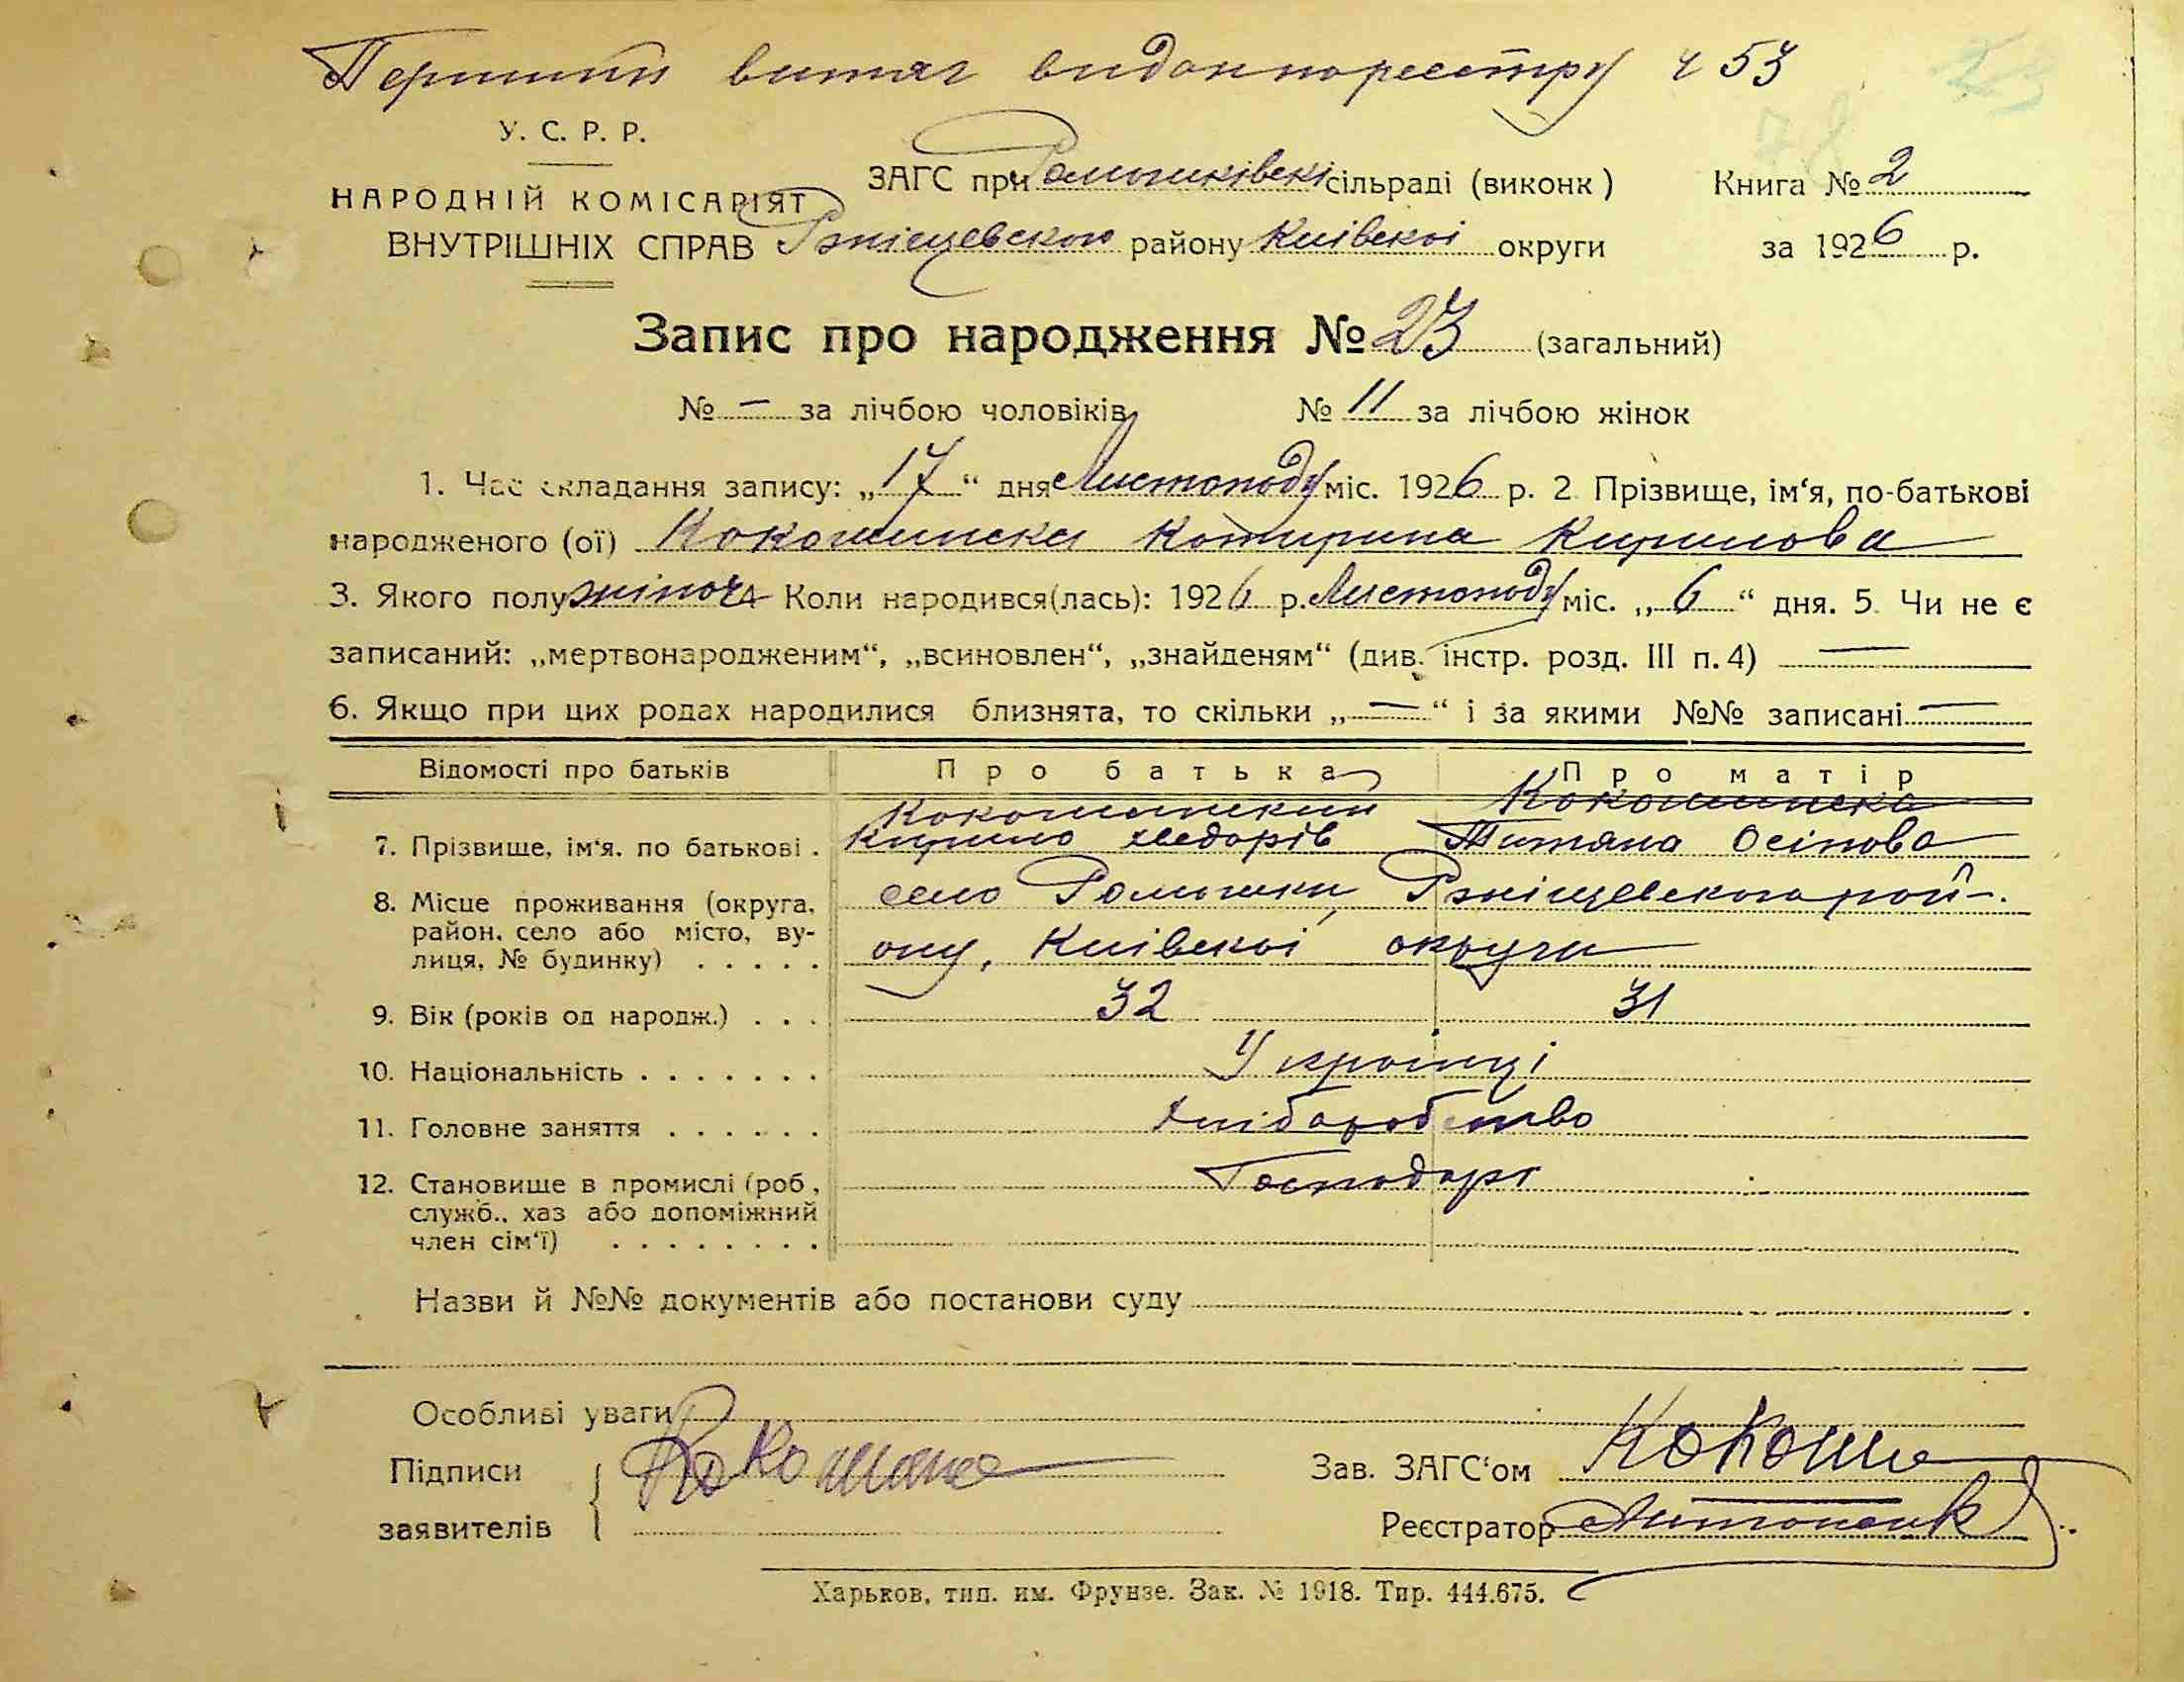 Перший витяг видан по реестру ч 53
У. С. Р. Р.
ЗАГС при Ромашківскі сільраді (виконк) Книга № 2
НАРОДНІЙ КОМІСАРІЯТ
ВНУТРІШНІХ СПРАВ Ржіщевского району Київскоі округи за 1926 р.
Запис про народження № 23 (загальний)
№ — за лічбою чоловіків № 11 за лічбою жінок
1. Час складання запису: „17“ дня Листопаду міс. 1926 р. 2 Прізвище, ім‘я, по-батькові
народженого (ої) Кокошинска Катирина Кирилова
3. Якого полу жіноч. Коли народився(лась): 1926 р. Листопаду міс. „6“ дня. 5. Чи не є
записаний: „мертвонародженим“, „всиновлен“, „знайденям“ (див. інстр. розд. III п. 4) —
6. Якщо при цих родах народилися близнята, то скільки „—“ і за якими №№ записані —
Відомості про батьків Про батька Про матір
Кокошинский Кокошинска
7. Прізвище, ім‘я. по батькові . Кирило Хведорів Титяна Осіпова
8. Місце проживання (округа, село Ромашки, Ржіщевского рай-
район, село або місто, ву-
лиця, № будинку) . . . . . ону, Київскоі округи
9. Вік (років од народж.) . . . 32 31
10. Національність . . . . . . . Украінці
11. Головне заняття . . . . . . Хліборобство
12. Становище в промислі (роб, Господарі
служб., хаз або допоміжний
член сім‘ї) . . . . . . . .
Назви й №№ документів або постанови суду
Особливі уваги
Підписи Зав. ЗАГС‘ом
заявителів Реєстратор
Харьков, тип. им. Фрунзе. Зак. № 1918. Тир. 444.675.